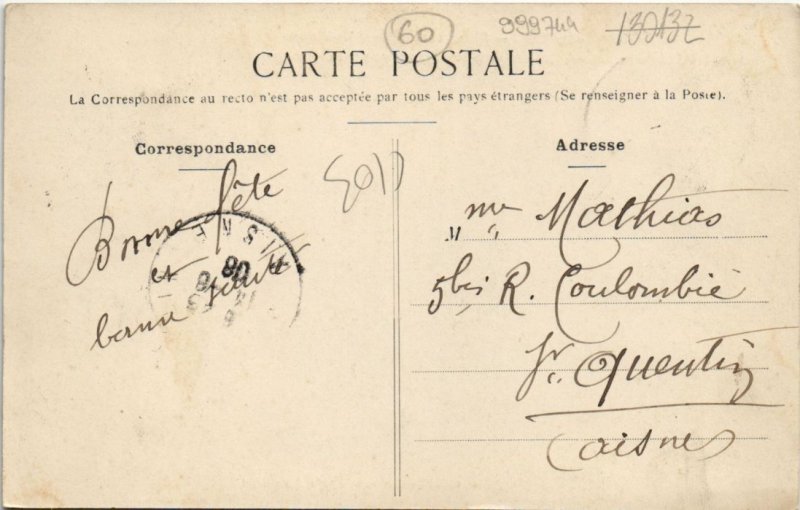 60
999744
139132
CARTE POSTALE
La Correspondance au recto n'est pas acceptée par tous les pays étrangers (Se renseigner à la Poste).
Correspondance
Bonne fête
et
bonne santé
AISNE
08
Adresse
Mathias
5bis R. Coulombié
St. Quentin
Aisne